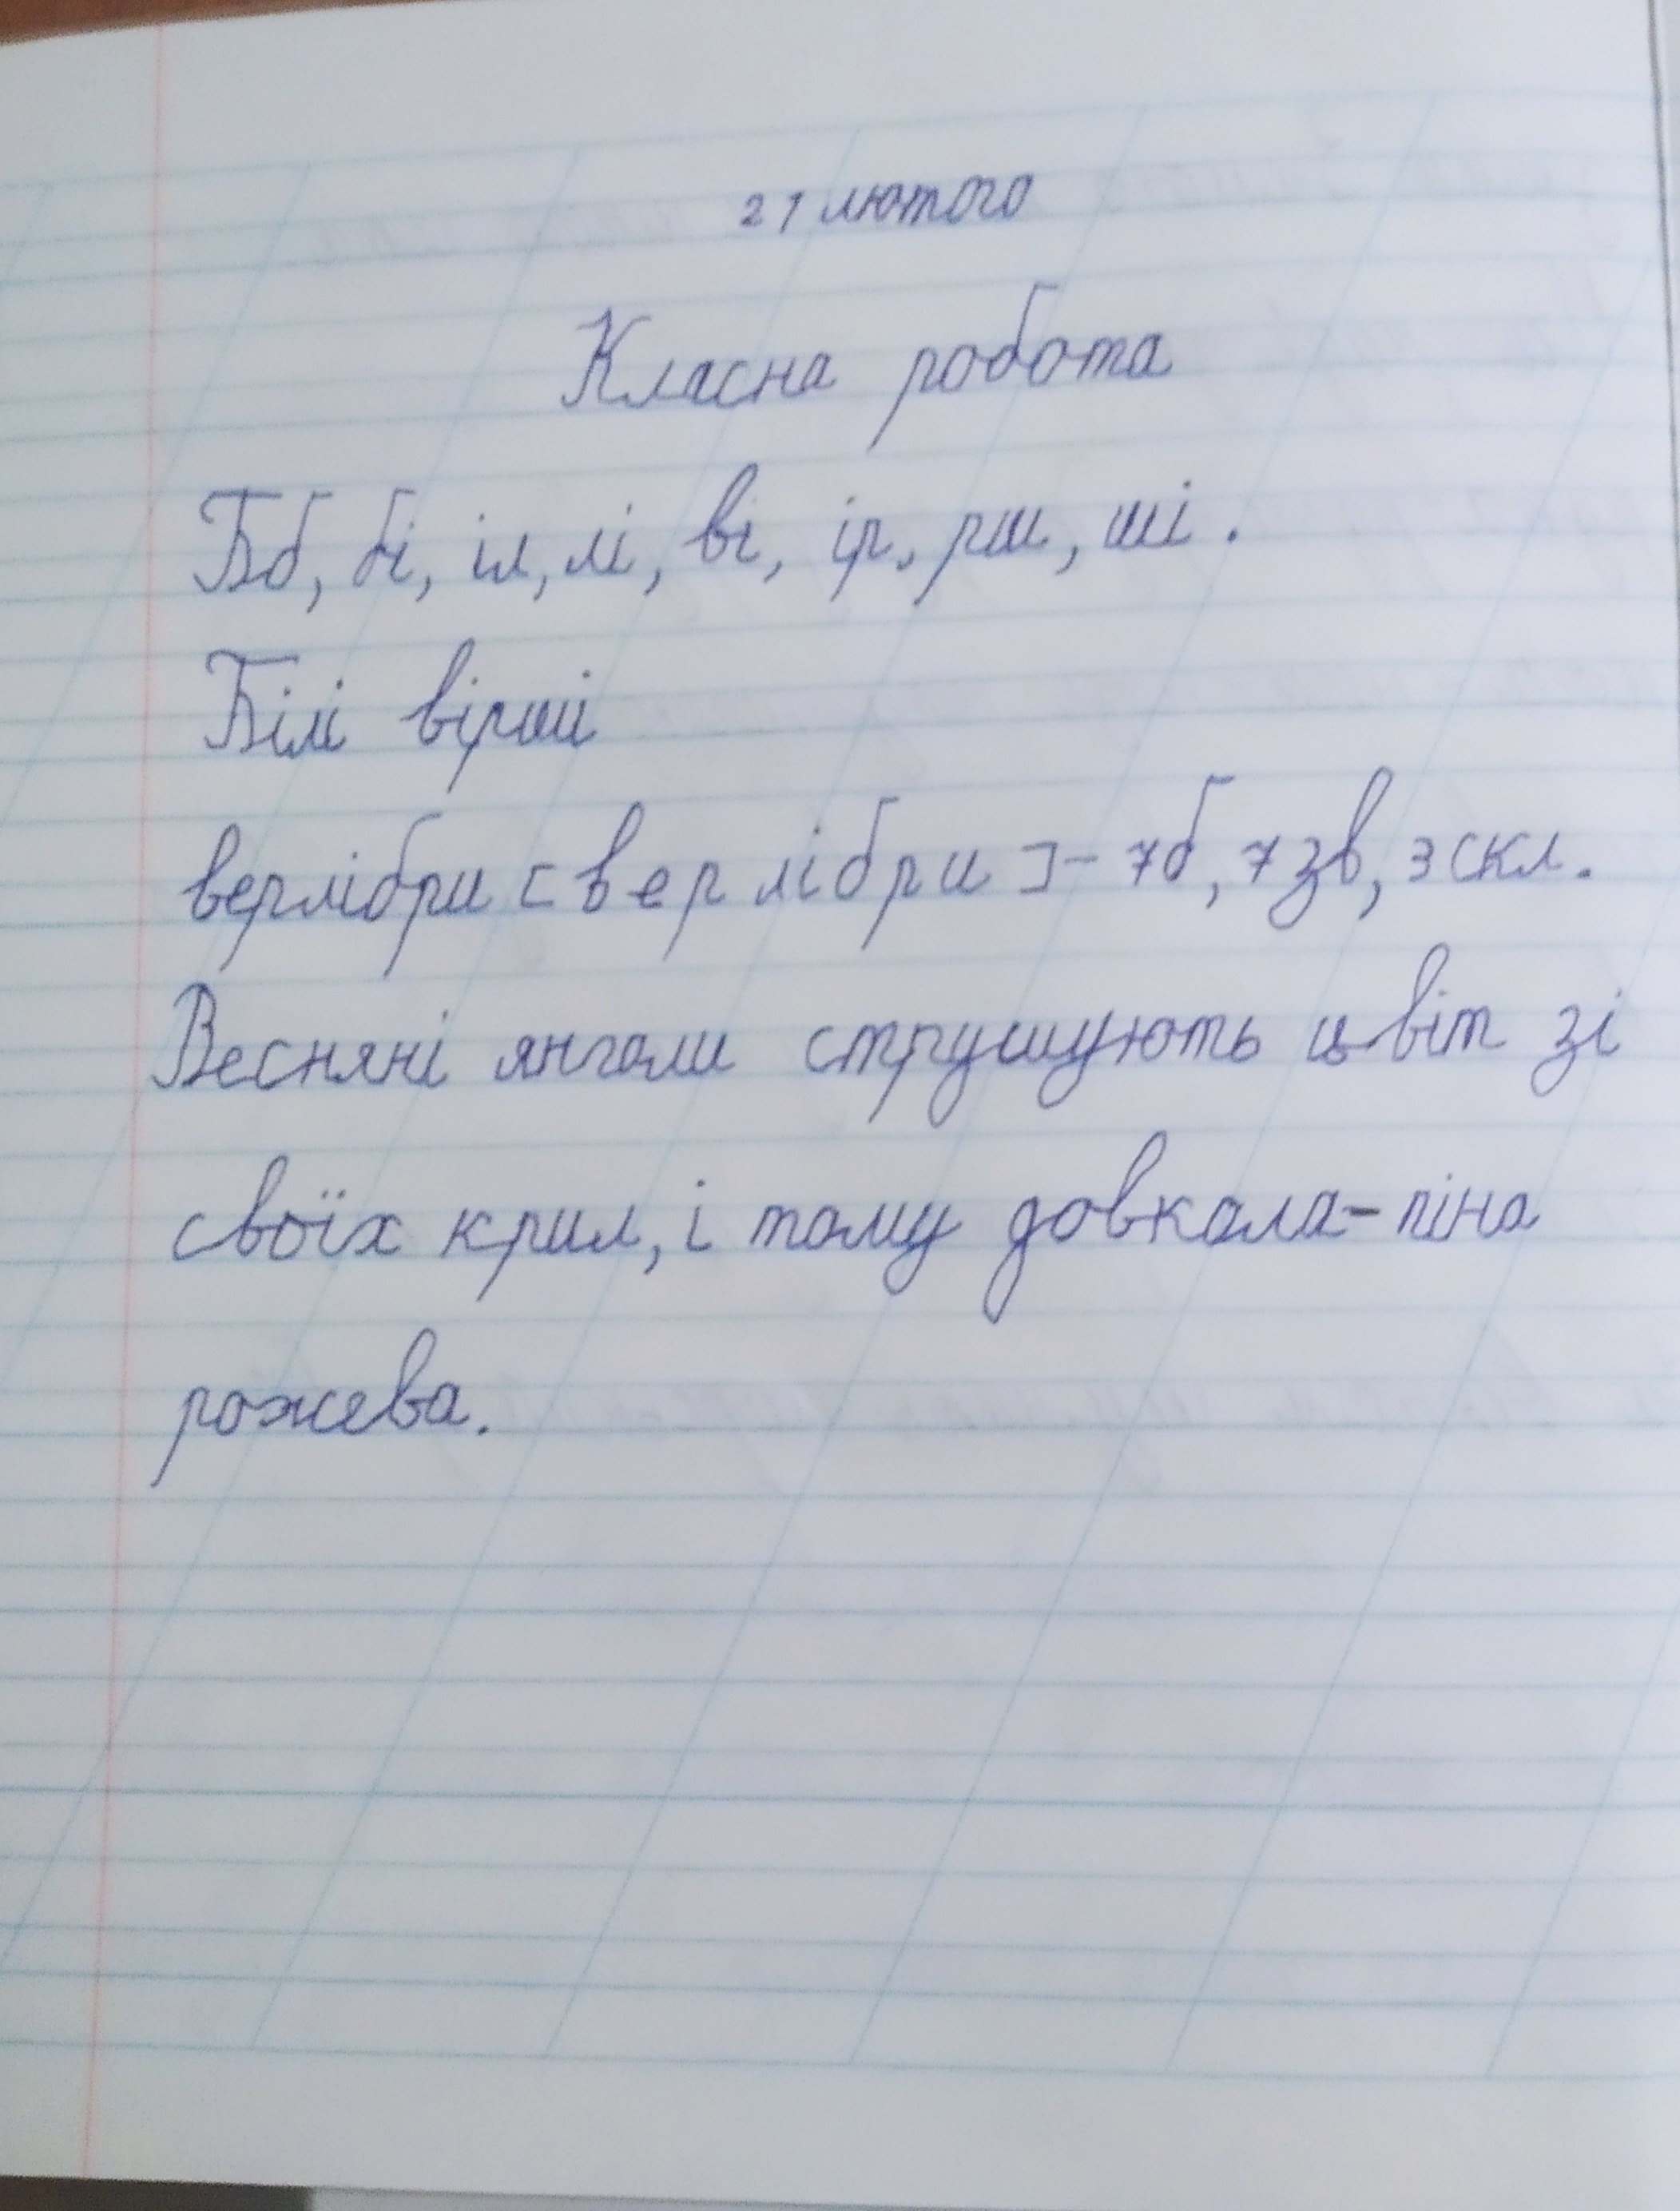 21 лютого
Класна робота
Бб, бі, іл, лі, ві, ір, рш, ші.
Білі вірші
верлібри [верлібри]- 7б, 7зв, 3скл.
Весняні янголи струшують цвіт зі
своїх крил, і тому довкола-піна
рожева.